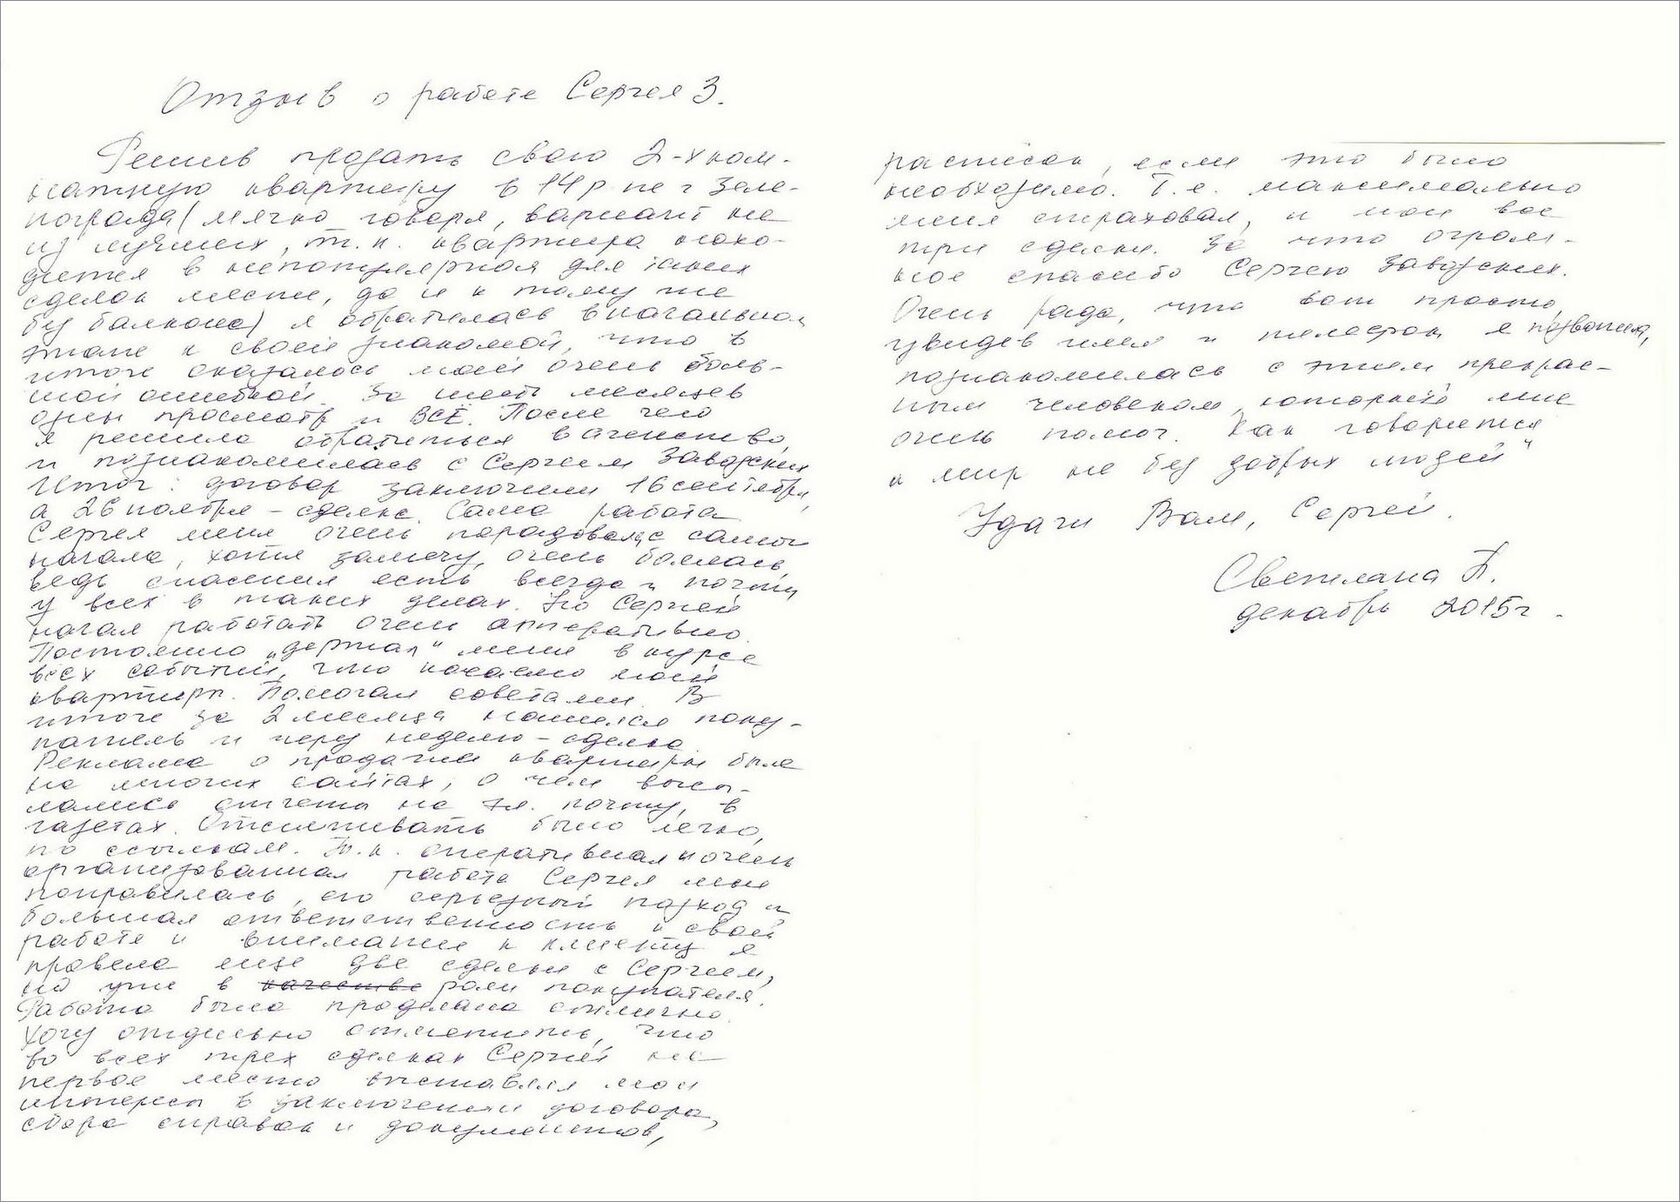 Отзыв о работе Сергея З.
Решив продать свою 2-х ком-
натную квартиру в 14 р-не г Зеле-
нограда (мягко говоря, вариант не
из лучших, т.к. квартира нахо-
дится в непопулярном для таких
сделок месте, да и к тому же
без балкона) я обратилась в начальном
этапе к своей знакомой, что в
итоге оказалось моей очень боль-
шой ошибкой. За шесть месяцев
один просмотр и ВСЁ. После чего
я решила обратиться в агенство,
и познакомилась с Сергеем Заводских
Итог: договор заключили 16 сентября,
а 26 ноября - сделка. Сама работа
Сергея меня очень порадовала с самого
начала, хотя замечу, очень боялась
ведь опасения есть всегда и почти
у всех в таких делах. Но Сергей
начал работать очень апперативно.
Постоянно „держал" меня в курсе
всех событий, что касаемо моей
квартиры. Помогал советами. В
итоге за 2 месяца нашелся поку-
патель и через неделю - сделка.
Реклама о продаже квартиры была
на многих сайтах, о чем высы-
лались отчеты на эл. почту, в
газетах. Отслеживать было легко,
по ссылкам. Т.к. оперативная и очень
организованная работа Сергея мне
понравилась, его серьезный подход и
большая ответственность к своей
работе и внимание к клиенту я
провела еще две сделки с Сергеем,
но уже в качестве роли покупателя.
Работа была проделана отлично.
Хочу отдельно отметить, что
во всех трех сделках Сергей на
первое место выставлял мои
интересы в заключении договора,
сбора справок и документов,
расписок, если это было
необходимо. Т.е. максимально
меня страховал, и мои все
три сделки. За что огром-
ное спасибо Сергею Заводских.
Очень рада, что вот просто,
увидев имя и телефон, я позвонила,
познакомилась с этим прекрас-
ным человеком, который мне
очень помог. Как говорится
„мир не без добрых людей"
Удачи Вам, Сергей.
Светлана П.
декабрь 2015г.